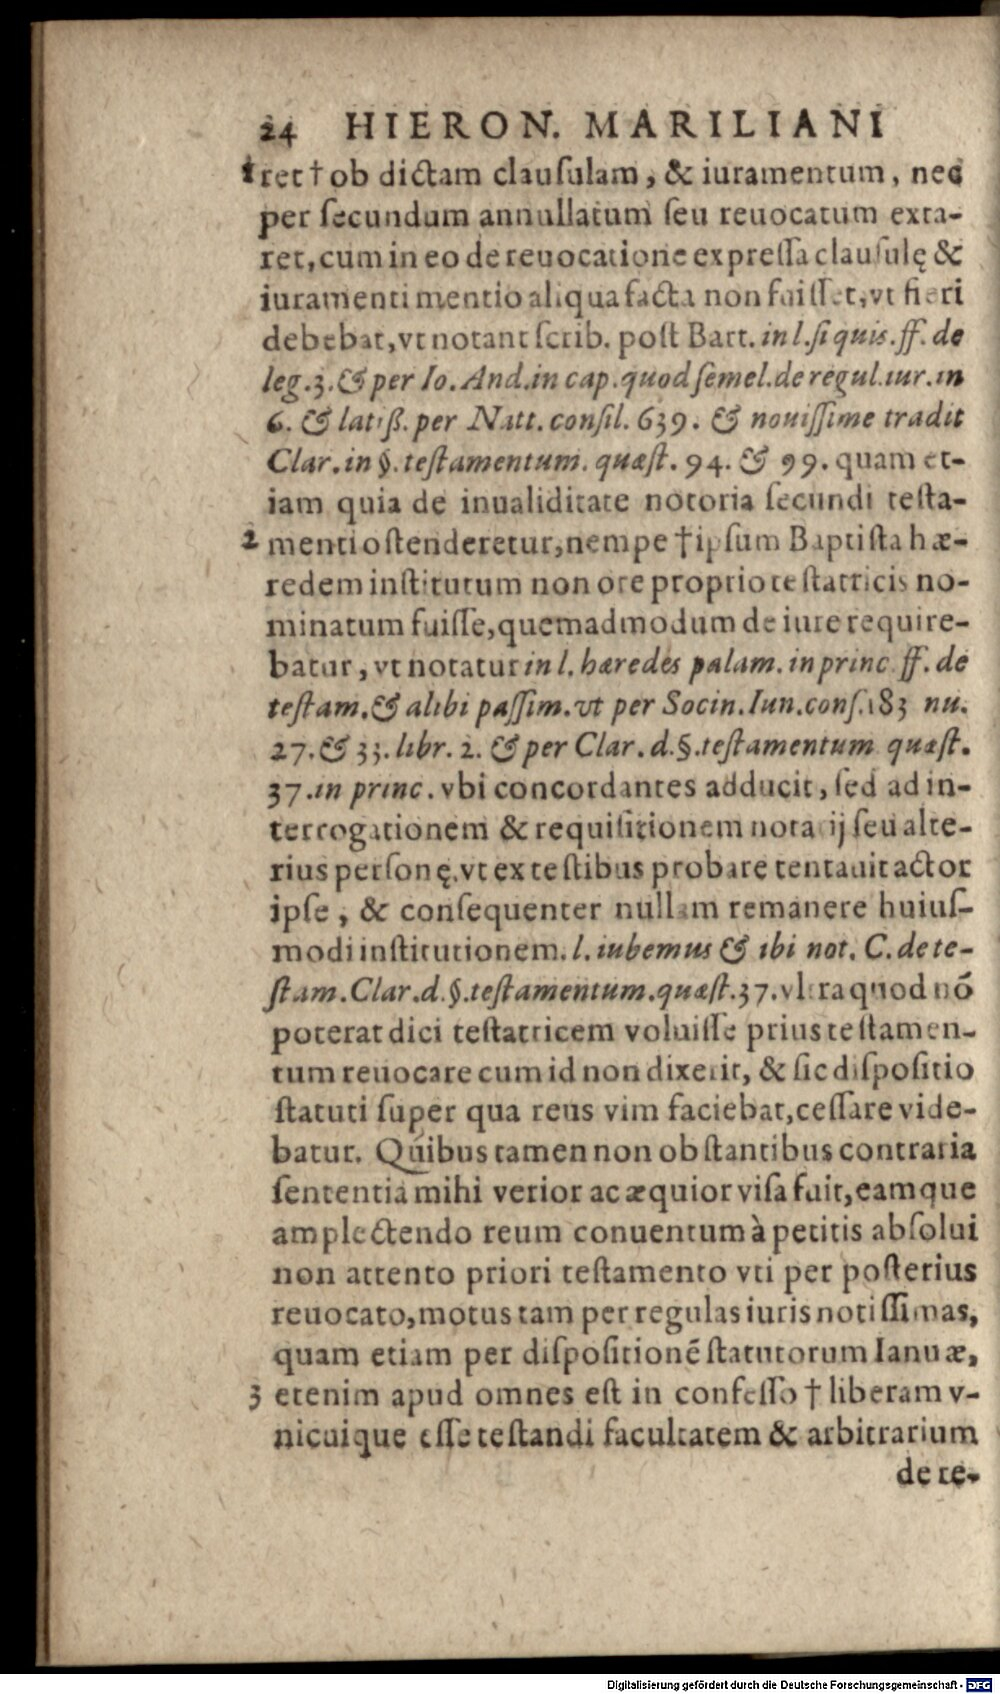 24 HIERON. MARILIANI
1 ret † ob dictam clauſulam, & iuramentum, nec
per ſecundum annullatum ſeu reuocatum exta-
ret, cum in eo de reuocatione expreſſa clauſulę &
iuramenti mentio aliqua facta non fuiſſet, vt fieri
debebat, vt notant ſcrib. poſt Bart. in l. ſi quis. ff. de
leg. 3. & per Io. And. in cap. quod ſemel. de regul. iur. in
6. & latiß. per Natt. conſil. 639. & nouiſſime tradit
Clar. in §. teſtamentum. quæſt. 94. & 99. quam et-
iam quia de inualiditate notoria ſecundi teſta-
2 menti oſtenderetur, nempe † ipſum Baptiſta hæ-
redem inſtitutum non ore proprio teſtatricis no-
minatum fuiſſe, quemadmodum de iure require-
batur, vt notatur in l. hæredes palam. in princ. ff. de
teſtam. & alibi paſſim. vt per Socin. Iun. conſ. 183 nu.
27. & 33. libr. 2. & per Clar. d. §. teſtamentum quæſt.
37. in princ. vbi concordantes adducit, ſed ad in-
terrogationem & requiſitionem notarij ſeu alte-
rius perſonę, vt ex teſtibus probare tentauit actor
ipſe, & conſequenter nullam remanere huiuſ-
modi inſtitutionem. l. iubemus & ibi not. C. de te-
ſtam. Clar. d. §. teſtamentum. quæſt. 37. vltra quod nō
poterat dici teſtatricem voluiſſe prius teſtamen-
tum reuocare cum id non dixerit, & ſic diſpoſitio
ſtatuti ſuper qua reus vim faciebat, ceſſare vide-
batur. Quibus tamen non obſtantibus contraria
ſententia mihi verior ac æquior viſa fuit, eamque
amplectendo reum conuentum à petitis abſolui
non attento priori teſtamento vti per poſterius
reuocato, motus tam per regulas iuris notiſſimas,
quam etiam per diſpoſitionē ſtatutorum Ianuæ,
3 etenim apud omnes eſt in confeſſo † liberam v-
nicuique eſſe teſtandi facultatem & arbitrarium
de re-
Digitalisierung gefördert durch die Deutsche Forschungsgemeinschaft - DFG